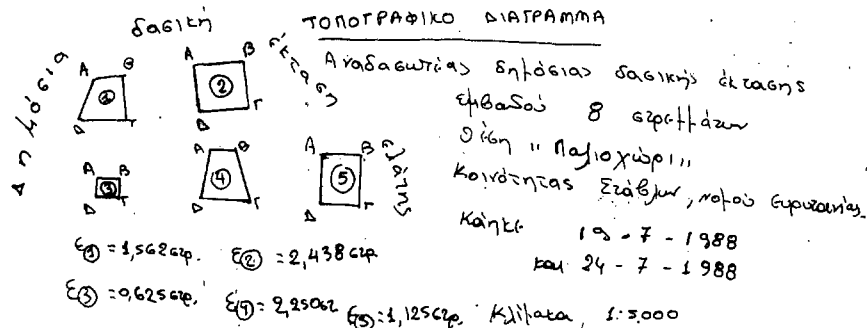 ΤΟΠΟΓΡΑΦΙΚΟ ΔΙΑΓΡΑΜΜΑ
Αναδασωτέας δημόσιας δασικής έκτασης
εμβαδού 8 στρεμμάτων
θέση "Παλιοχώρι"
Κοινότητας Στάβλων, νομού Ευρυτανίας.
Κάηκε 19-7-1988
και 24-7-1988
Δημόσια δασική έκταση ελάτης
Α Β
① 
Δ Γ
Α Β
②
Δ Γ
Α Β
③
Δ Γ
Α Β
④
Δ Γ
Α Β
⑤
Δ Γ
Ε① = 1,562 στρ. Ε② = 2,438 στρ
Ε③ = 0,625 στρ. Ε④ = 2,250 στ Ε⑤ = 1,125 στρ. Κλίμακα, 1:5.000